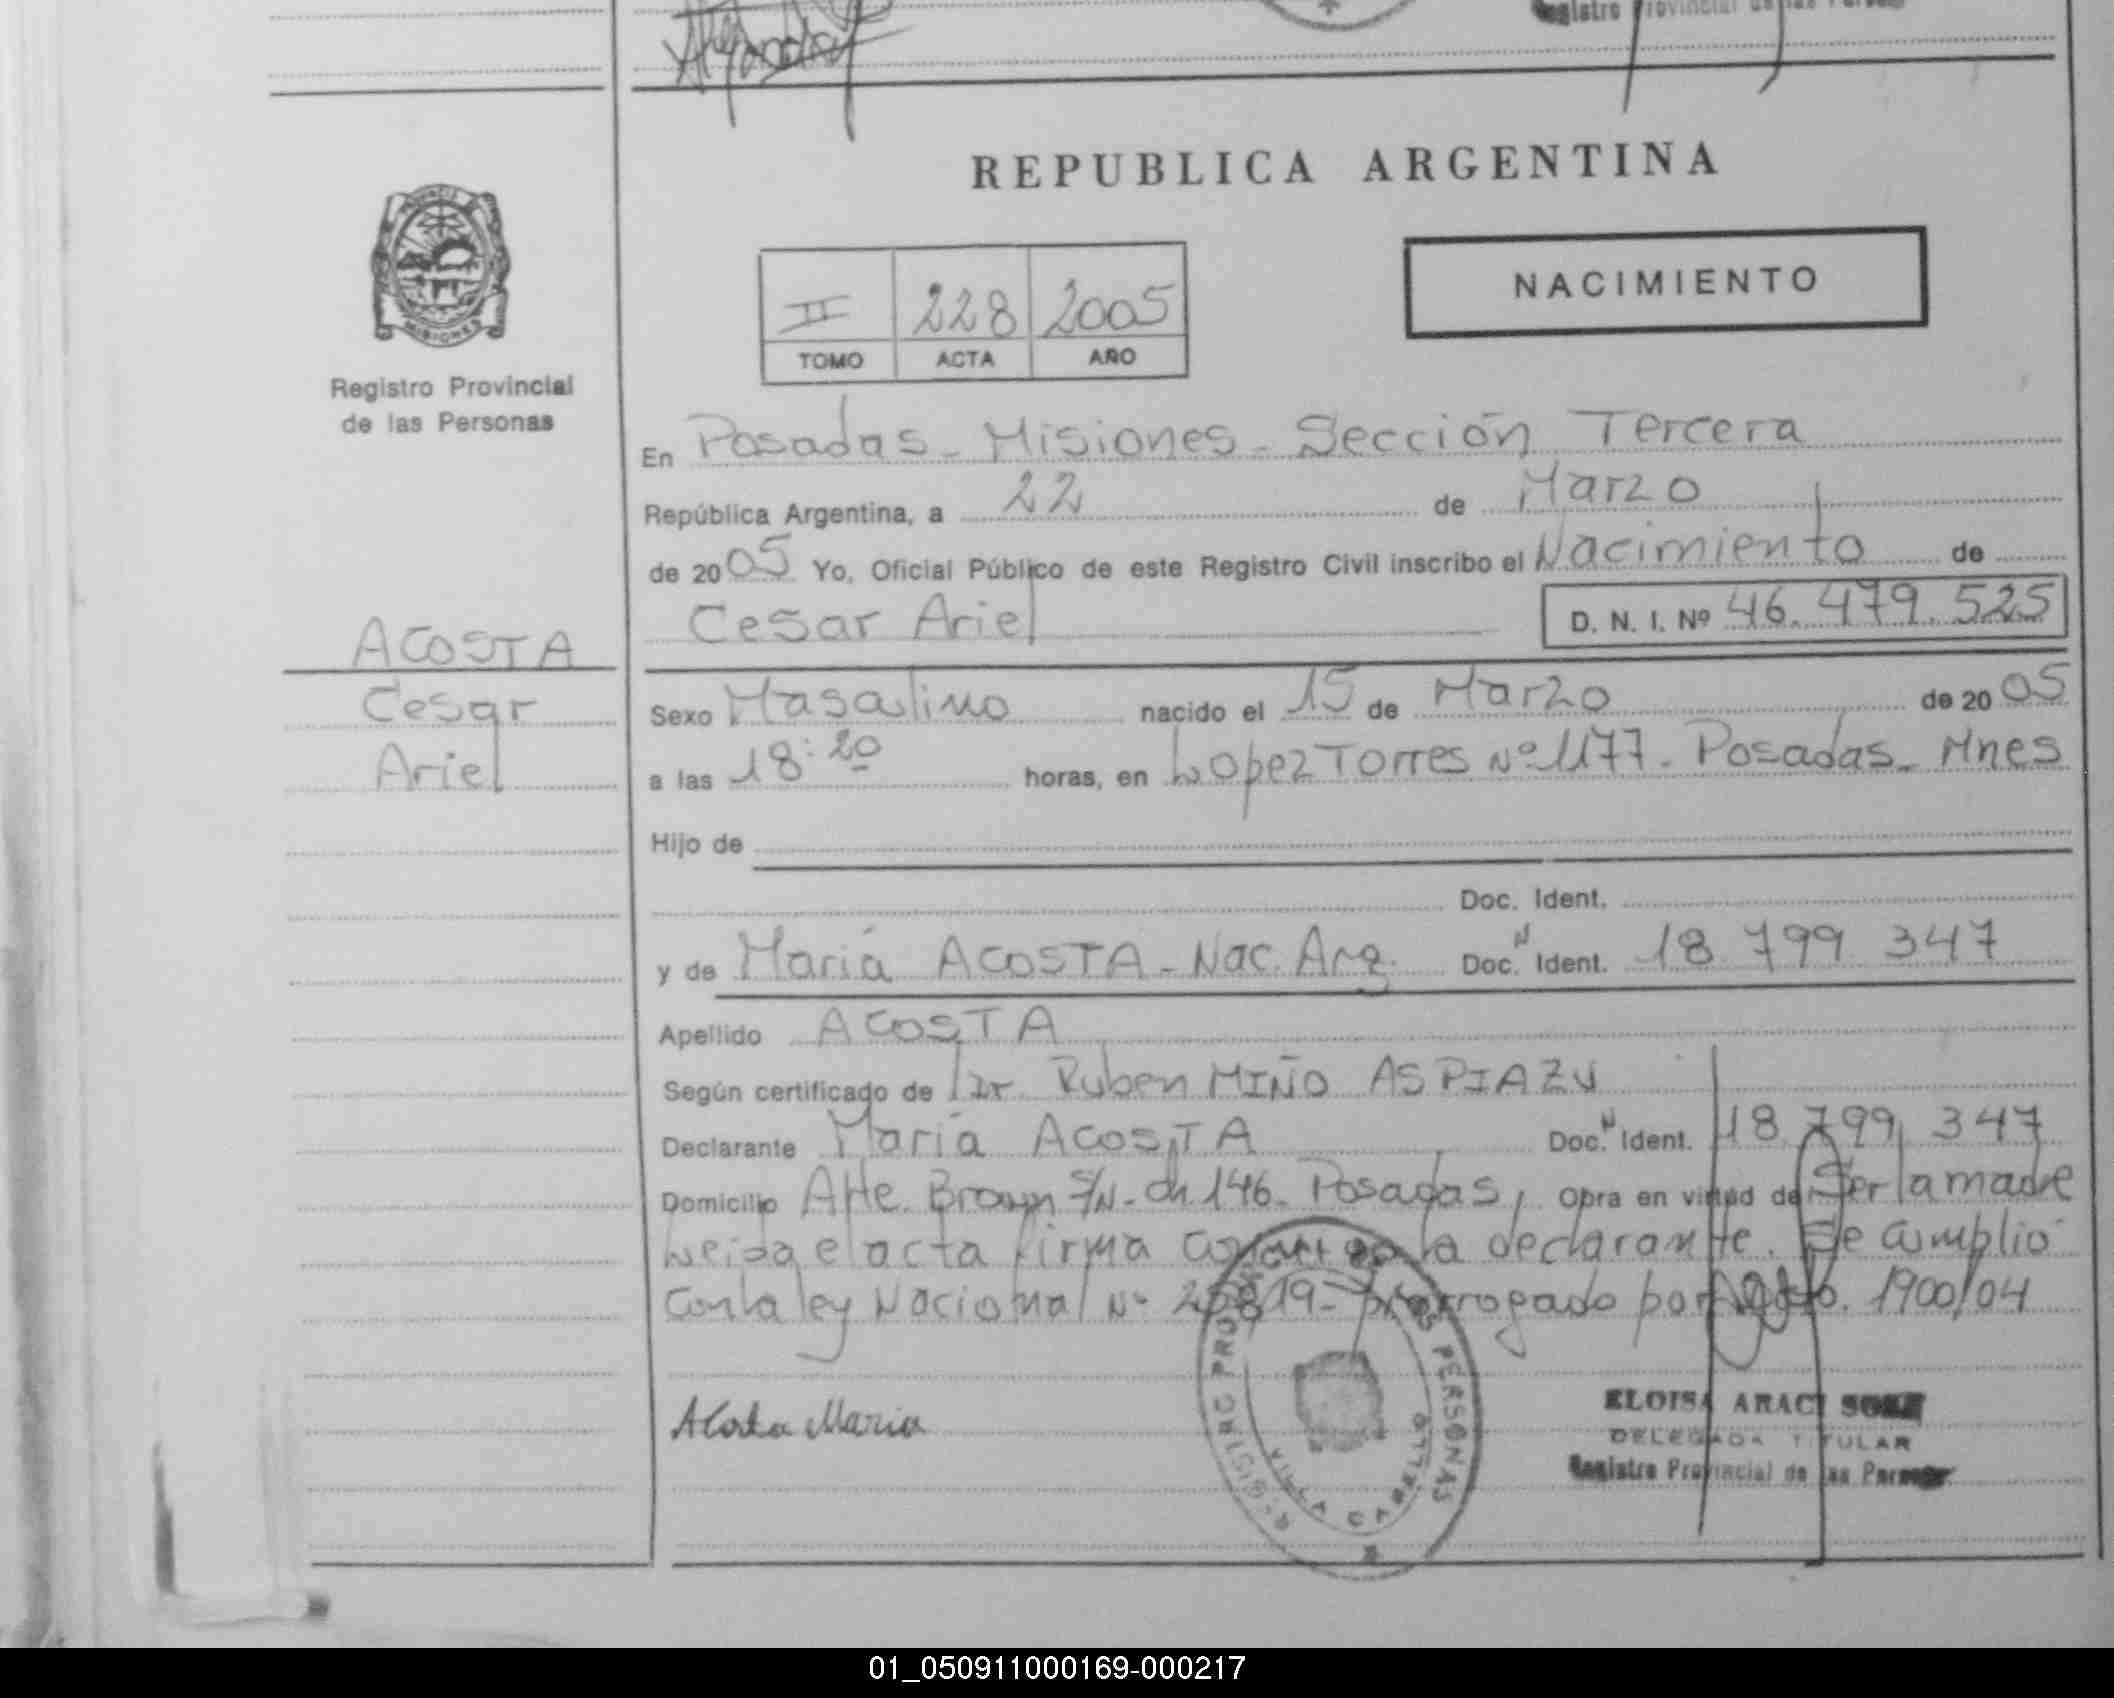 Registro Provincial de las Personas
REPUBLICA ARGENTINA
NACIMIENTO
II 228 2005
TOMO ACTA AÑO
PROVINCIA
MISIONES
Registro Provincial
de las Personas
ACOSTA
Cesar
Ariel
En Posadas - Misiones - Sección Tercera
República Argentina, a 22 de Marzo
de 2005 Yo, Oficial Público de este Registro Civil inscribo el Nacimiento de
Cesar Ariel D. N. I. Nº 46.479.525
Sexo Masculino nacido el 15 de Marzo de 2005
a las 18:20 horas, en Lopez Torres Nº 1177 - Posadas - Mnes
Hijo de
Doc. Ident.
y de María ACOSTA - Nac. Arg. Doc. N Ident. 18 799 347
Apellido ACOSTA
Según certificado de Dr. Ruben MIÑO ASPIAZU
Declarante María ACOSTA Doc. N Ident. 18 799 347
Domicilio Alte. Brown S/N - Ch. 146 - Posadas, Obra en virtud de Ser la madre
Leida el acta firma conmigo la declarante. Se cumplio
Con la ley Nacional Nº 25819 - prorrogado por Dto. 1900/04
Acosta Maria
REGISTRO PROVINCIAL DE LAS PERSONAS
VILLA CABELLO
ELOISA ARACI
DELEGADA TITULAR
Registro Provincial de las Personas
01_050911000169-000217